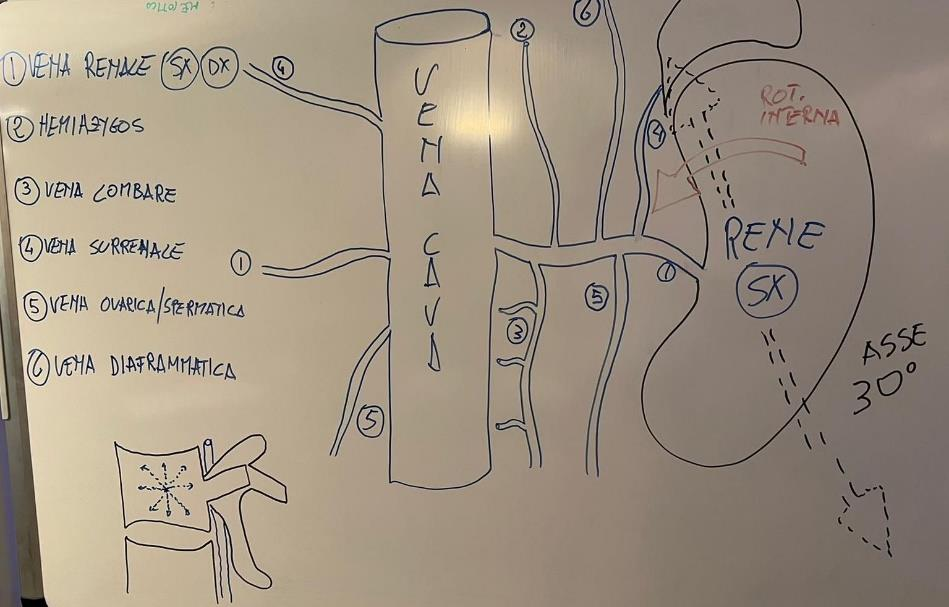 ① VENA RENALE (SX) (DX)
② HEMIAZYGOS
③ VENA LOMBARE
④ VENA SURRENALE
⑤ VENA OVARICA/SPERMATICA
⑥ VENA DIAFRAMMATICA
④
①
⑤
VENA CAVA
②
⑥
④
③
⑤
①
ROT.
INTERNA
RENE
SX
ASSE
30°